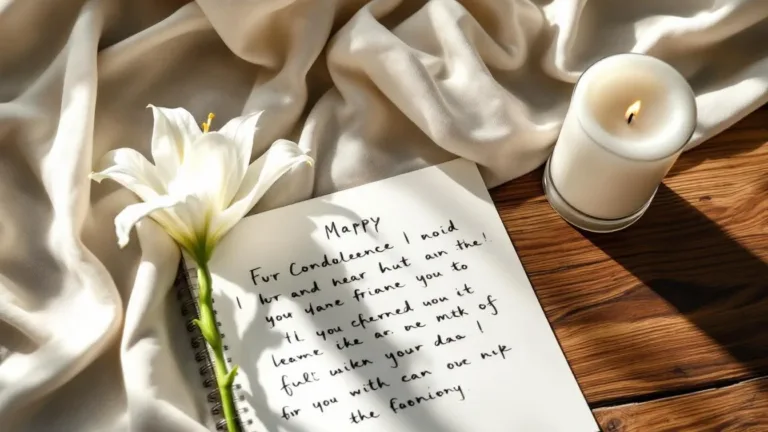 Mappy
Fur Condolence I noid
I hr and near hut an the!
you yane friane you to
tl you cherned uou it
leame ike ar. ne mtk of
fult wikn your daa !
for you with can ove nık
the faoniony